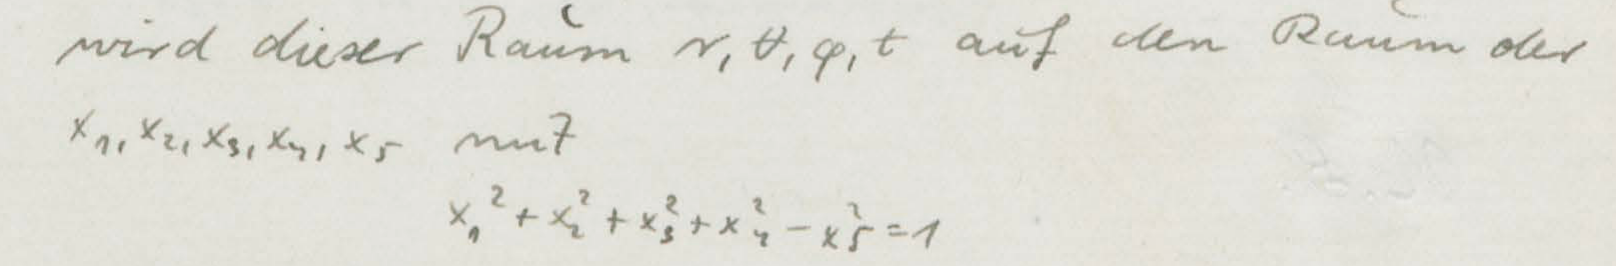 wird dieser Raum r, ϑ, φ, t auf den Raum der
x₁, x₂, x₃, x₄, x₅ mit
x₁² + x₂² + x₃² + x₄² − x₅² = 1